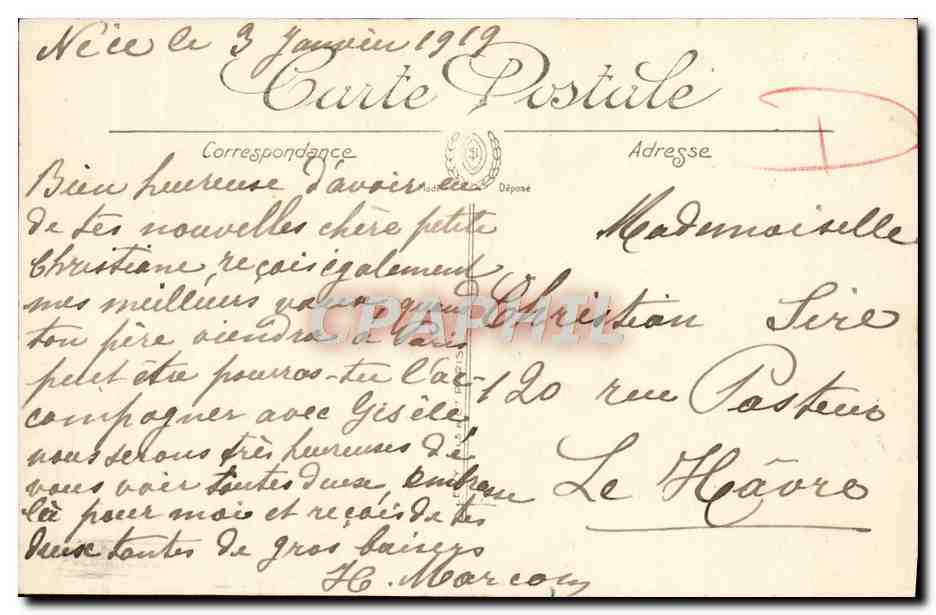 Nice le 3 Janvier 1919
Carte Postale
Correspondance
Adresse
Modèle Déposé
Bien heureuse d'avoir eu
de tes nouvelles chère petite
Christiane, reçois également
mes meilleurs vœux, quand
ton père viendra à Paris
peut être pourras-tu l'ac-
compagner avec Gisèle
nous serons très heureuses de
vous voir toutes deux, embrasse
la pour moi et reçois de tes
deux tantes de gros baisers
H. Marcou
Mademoiselle
Christian Sire
120 rue Pasteur
Le Hâvre
CPAPHIL